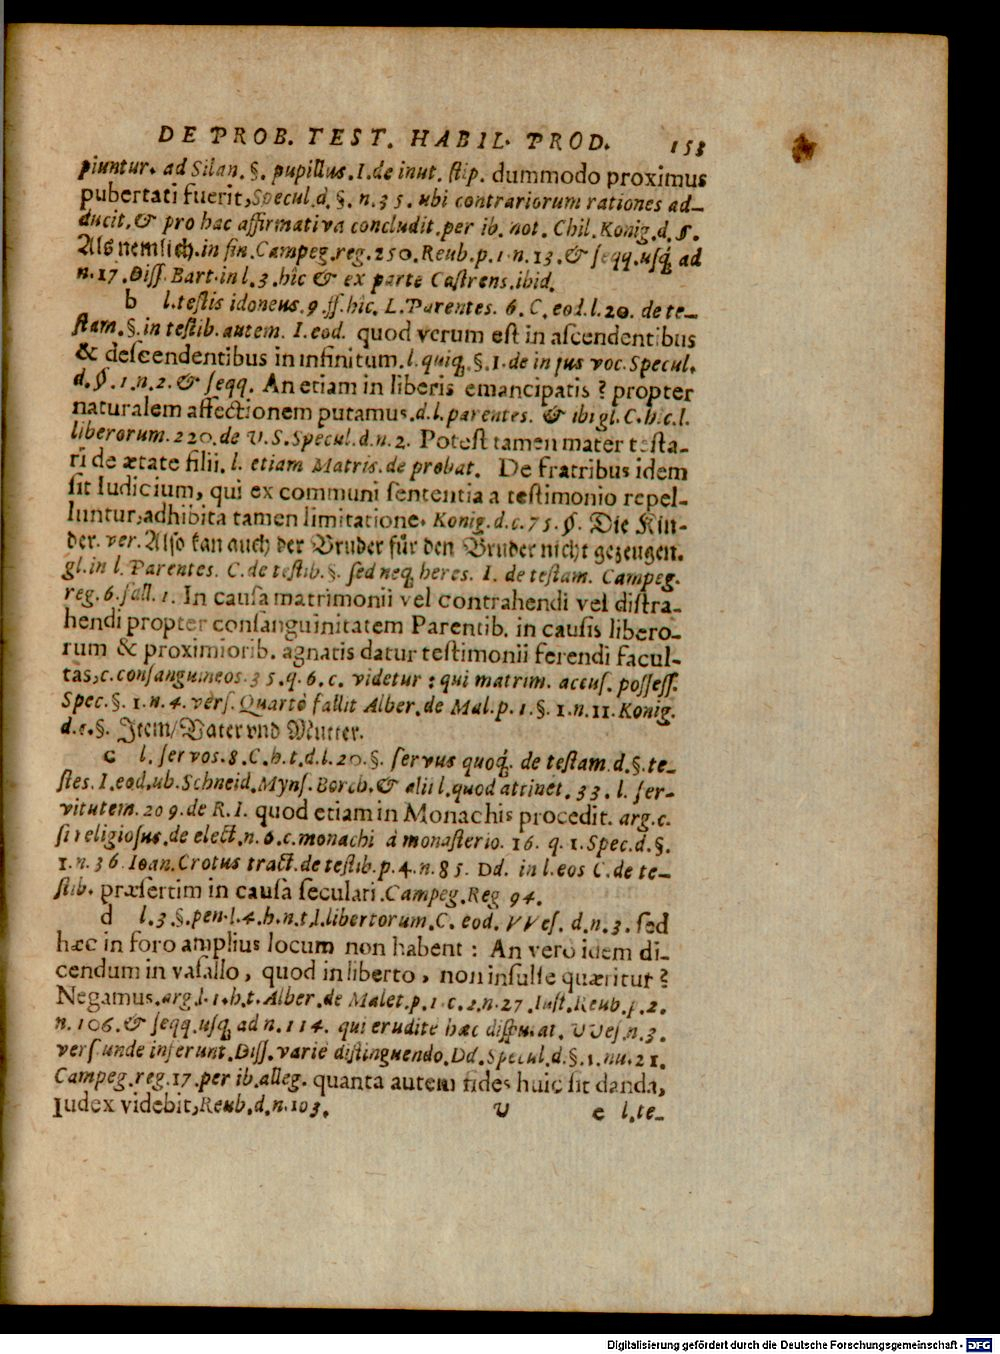 DE PROB. TEST. HABIL. PROD. 153
piuntur. ad Silan. §. pupillus. I. de inut. stip. dummodo proximus
pubertati fuerit, Specul. d. §. n. 35. ubi contrariorum rationes ad-
ducit, & pro hac affirmativa concludit. per ib. not. Chil. Konig. d. §.
Als nemlich. in fin. Campeg. reg. 250. Reub. p. 1. n. 13. & seqq. usq; ad
n. 17. Diss. Bart. in l. 3. hîc & ex parte Castrens. ibid.
b l. testis idoneus. 9. ff. hîc. L. Parentes. 6. C. eod. l. 20. de te-
stam. §. in testib. autem. I. eod. quod verum est in ascendentibus
& descendentibus in infinitum. l. quiq; §. 1. de in jus voc. Specul.
d. §. 1. n. 2. & seqq. An etiam in liberis emancipatis ? propter
naturalem affectionem putamus. d. l. parentes. & ibi gl. C. h. c. l.
liberorum. 220. de V. S. Specul. d. n. 2. Potest tamen mater testa-
ri de ætate filii. l. etiam Matris. de probat. De fratribus idem
sit Iudicium, qui ex communi sententia a testimonio repel-
luntur, adhibita tamen limitatione. Konig. d. c. 75. §. Die Kin-
der. ver. Also kan auch der Bruder für den Bruder nicht gezeugen.
gl. in l. Parentes. C. de testib. §. sed neq; heres. I. de testam. Campeg.
reg. 6. fall. 1. In causa matrimonii vel contrahendi vel distra-
hendi propter consanguinitatem Parentib. in causis libero-
rum & proximiorib. agnatis datur testimonii ferendi facul-
tas, c. consanguineos. 35. q. 6. c. videtur : qui matrim. accus. possess.
Spec. §. 1. n. 4. vers. Quartò fallit Alber. de Mal. p. 1. §. 1. n. 11. Konig.
d. c. §. Item/ Vater vnd Mutter.
c l. servos. 8. C. h. t. d. l. 20. §. servus quoq;. de testam. d. §. te-
stes. I. eod. ub. Schneid. Myns. Borch. & alii l. quod attinet. 33. l. ser-
vitutem. 209. de R. I. quod etiam in Monachis procedit. arg. c.
si religiosus. de elect. n. 6. c. monachi à monasterio. 16. q. 1. Spec. d. §.
1. n. 36. Ioan. Crotus tract. de testib. p. 4. n. 85. Dd. in l. eos C. de te-
stib. præsertim in causa seculari. Campeg. Reg 94.
d l. 3. §. pen. l. 4. h. n. t. l. libertorum. C. eod. VVes. d. n. 3. sed
hæc in foro amplius locum non habent : An verò idem di-
cendum in vasallo, quod in liberto, non insulse quæritur ?
Negamus. arg. l. 1. h. t. Alber. de Malet. p. 1. c. 2. n. 27. Iust. Reub. p. 2.
n. 106. & seqq. usq; ad n. 114. qui erudite hæc disputat. VVes. n. 3.
vers. unde inferunt. Diss. varie distinguendo. Dd. Specul. d. §. 1. nu. 21.
Campeg. reg. 17. per ib. alleg. quanta autem fides huic sit danda,
Iudex videbit, Reub. d. n. 103.
V e l. te-
Digitalisierung gefördert durch die Deutsche Forschungsgemeinschaft - DFG